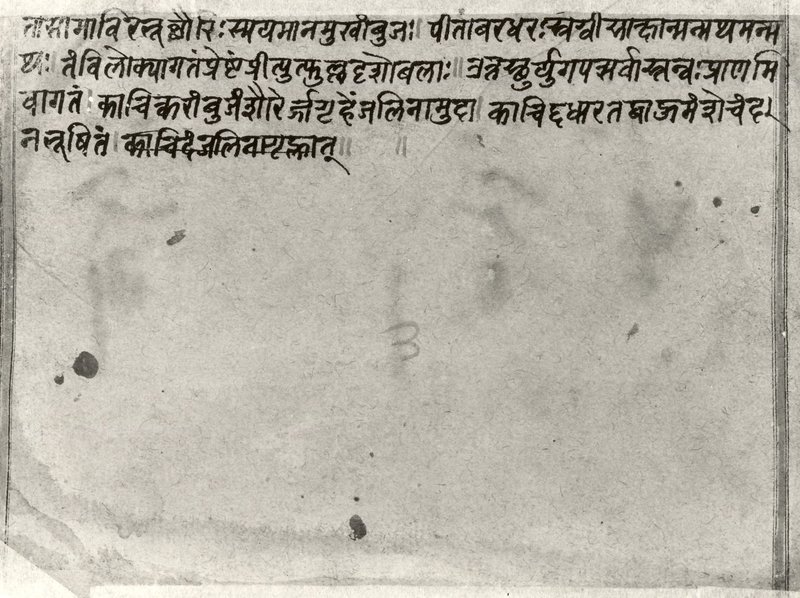 तासामाविरभूच्छौरिः स्मयमानमुखांबुजः॥ पीतांबरधरः स्रग्वी साक्षान्मन्मथमन्म
थः तं विलोक्यागतं प्रेष्टं प्रीत्युत्फुल्लदृशोबलाः॥ उत्तस्छुर्युगपत्सर्वास्तन्वः प्राणमि
वागतं काचित्करांबुजं शौरेर्जगृहेंजलिनामुदा काचिद्दधार तद्बाऊमंशेचंद
नभूषितं काचिदंजलिनागृह्णात्॥ ॥
३